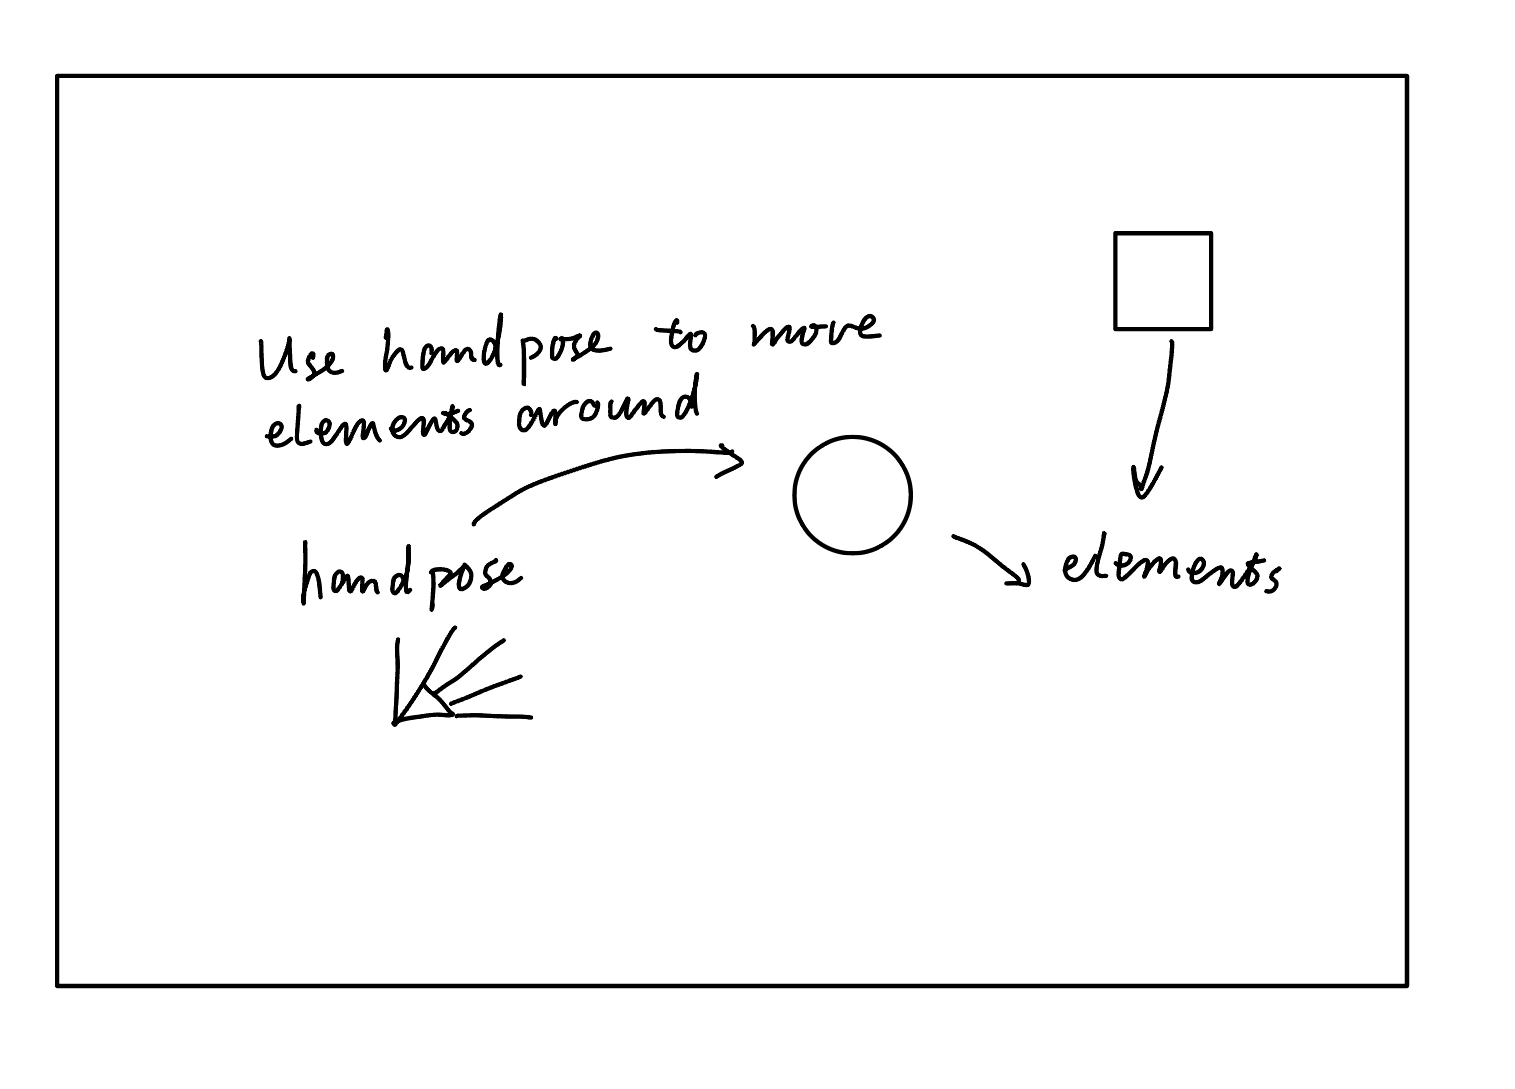 Use handpose to move
elements around
handpose
elements